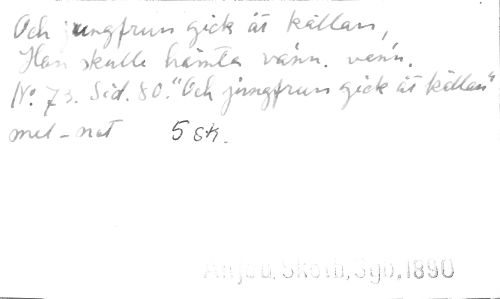 Och jungfrun gick åt källan,
Hon skulle hämta vann. venn.
No. 73. Sid. 80. "Och jungfrun gick åt källan"
mel-not 5 sk.
1890